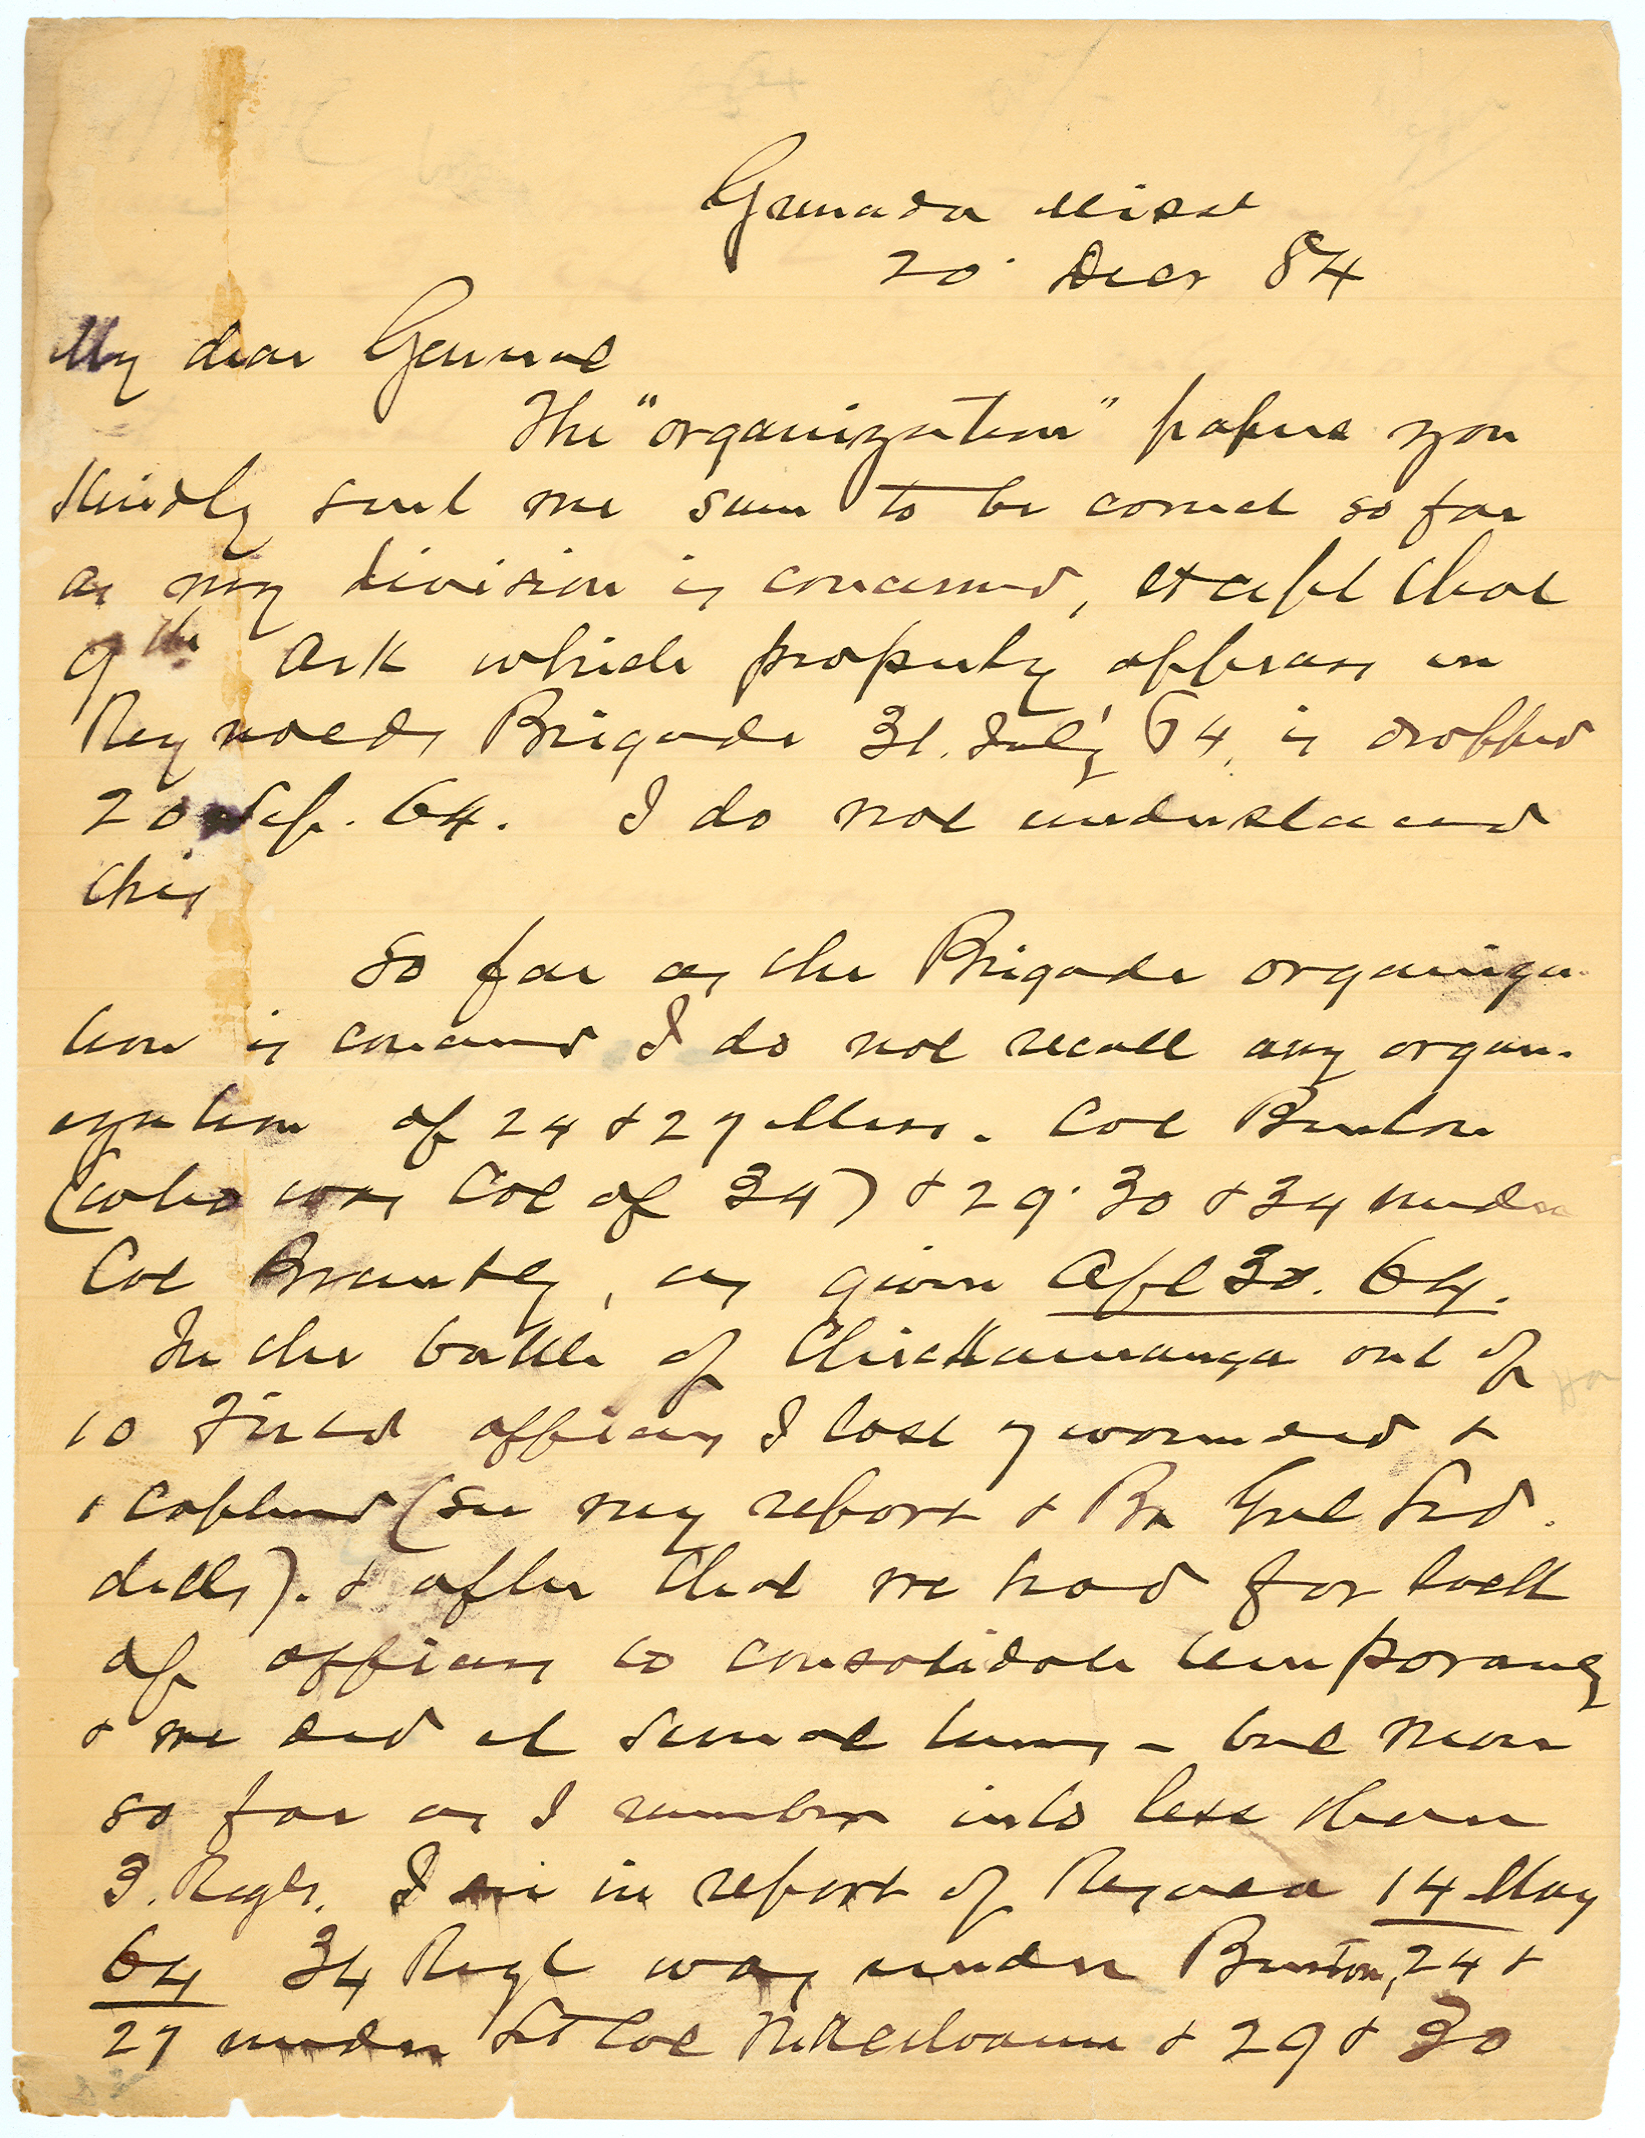 Grenada Miss
20 Decr 84
My dear General
The "organization" papers you
kindly sent me seem to be correct so far
as my division is concerned, except that
9th Ark which properly appears in
Reynolds Brigade 31. July 64, is dropped
20 Sep. 64. I do not understand
this
So far as the Brigade organiza-
tion is concerned I do not recall any organ-
ization of 24 & 27 Miss. Col Benton
(who was Col of 34) & 29. 30 & 34 under
Col Brantly, as given Apl 30. 64.
In the battle of Chickamauga out of
10 Field officers I lost 7 wounded &
1 captured (see my report & Br Genl
). & after that we had for lack
of officers to consolidate temporarily
& we did at several times - but never
so far as I remember into less than
3. Regts. I see in report of Resaca 14 May
64 34 Regt was under Benton, 24 &
27 under Lt Col McKelvaine & 29 & 30